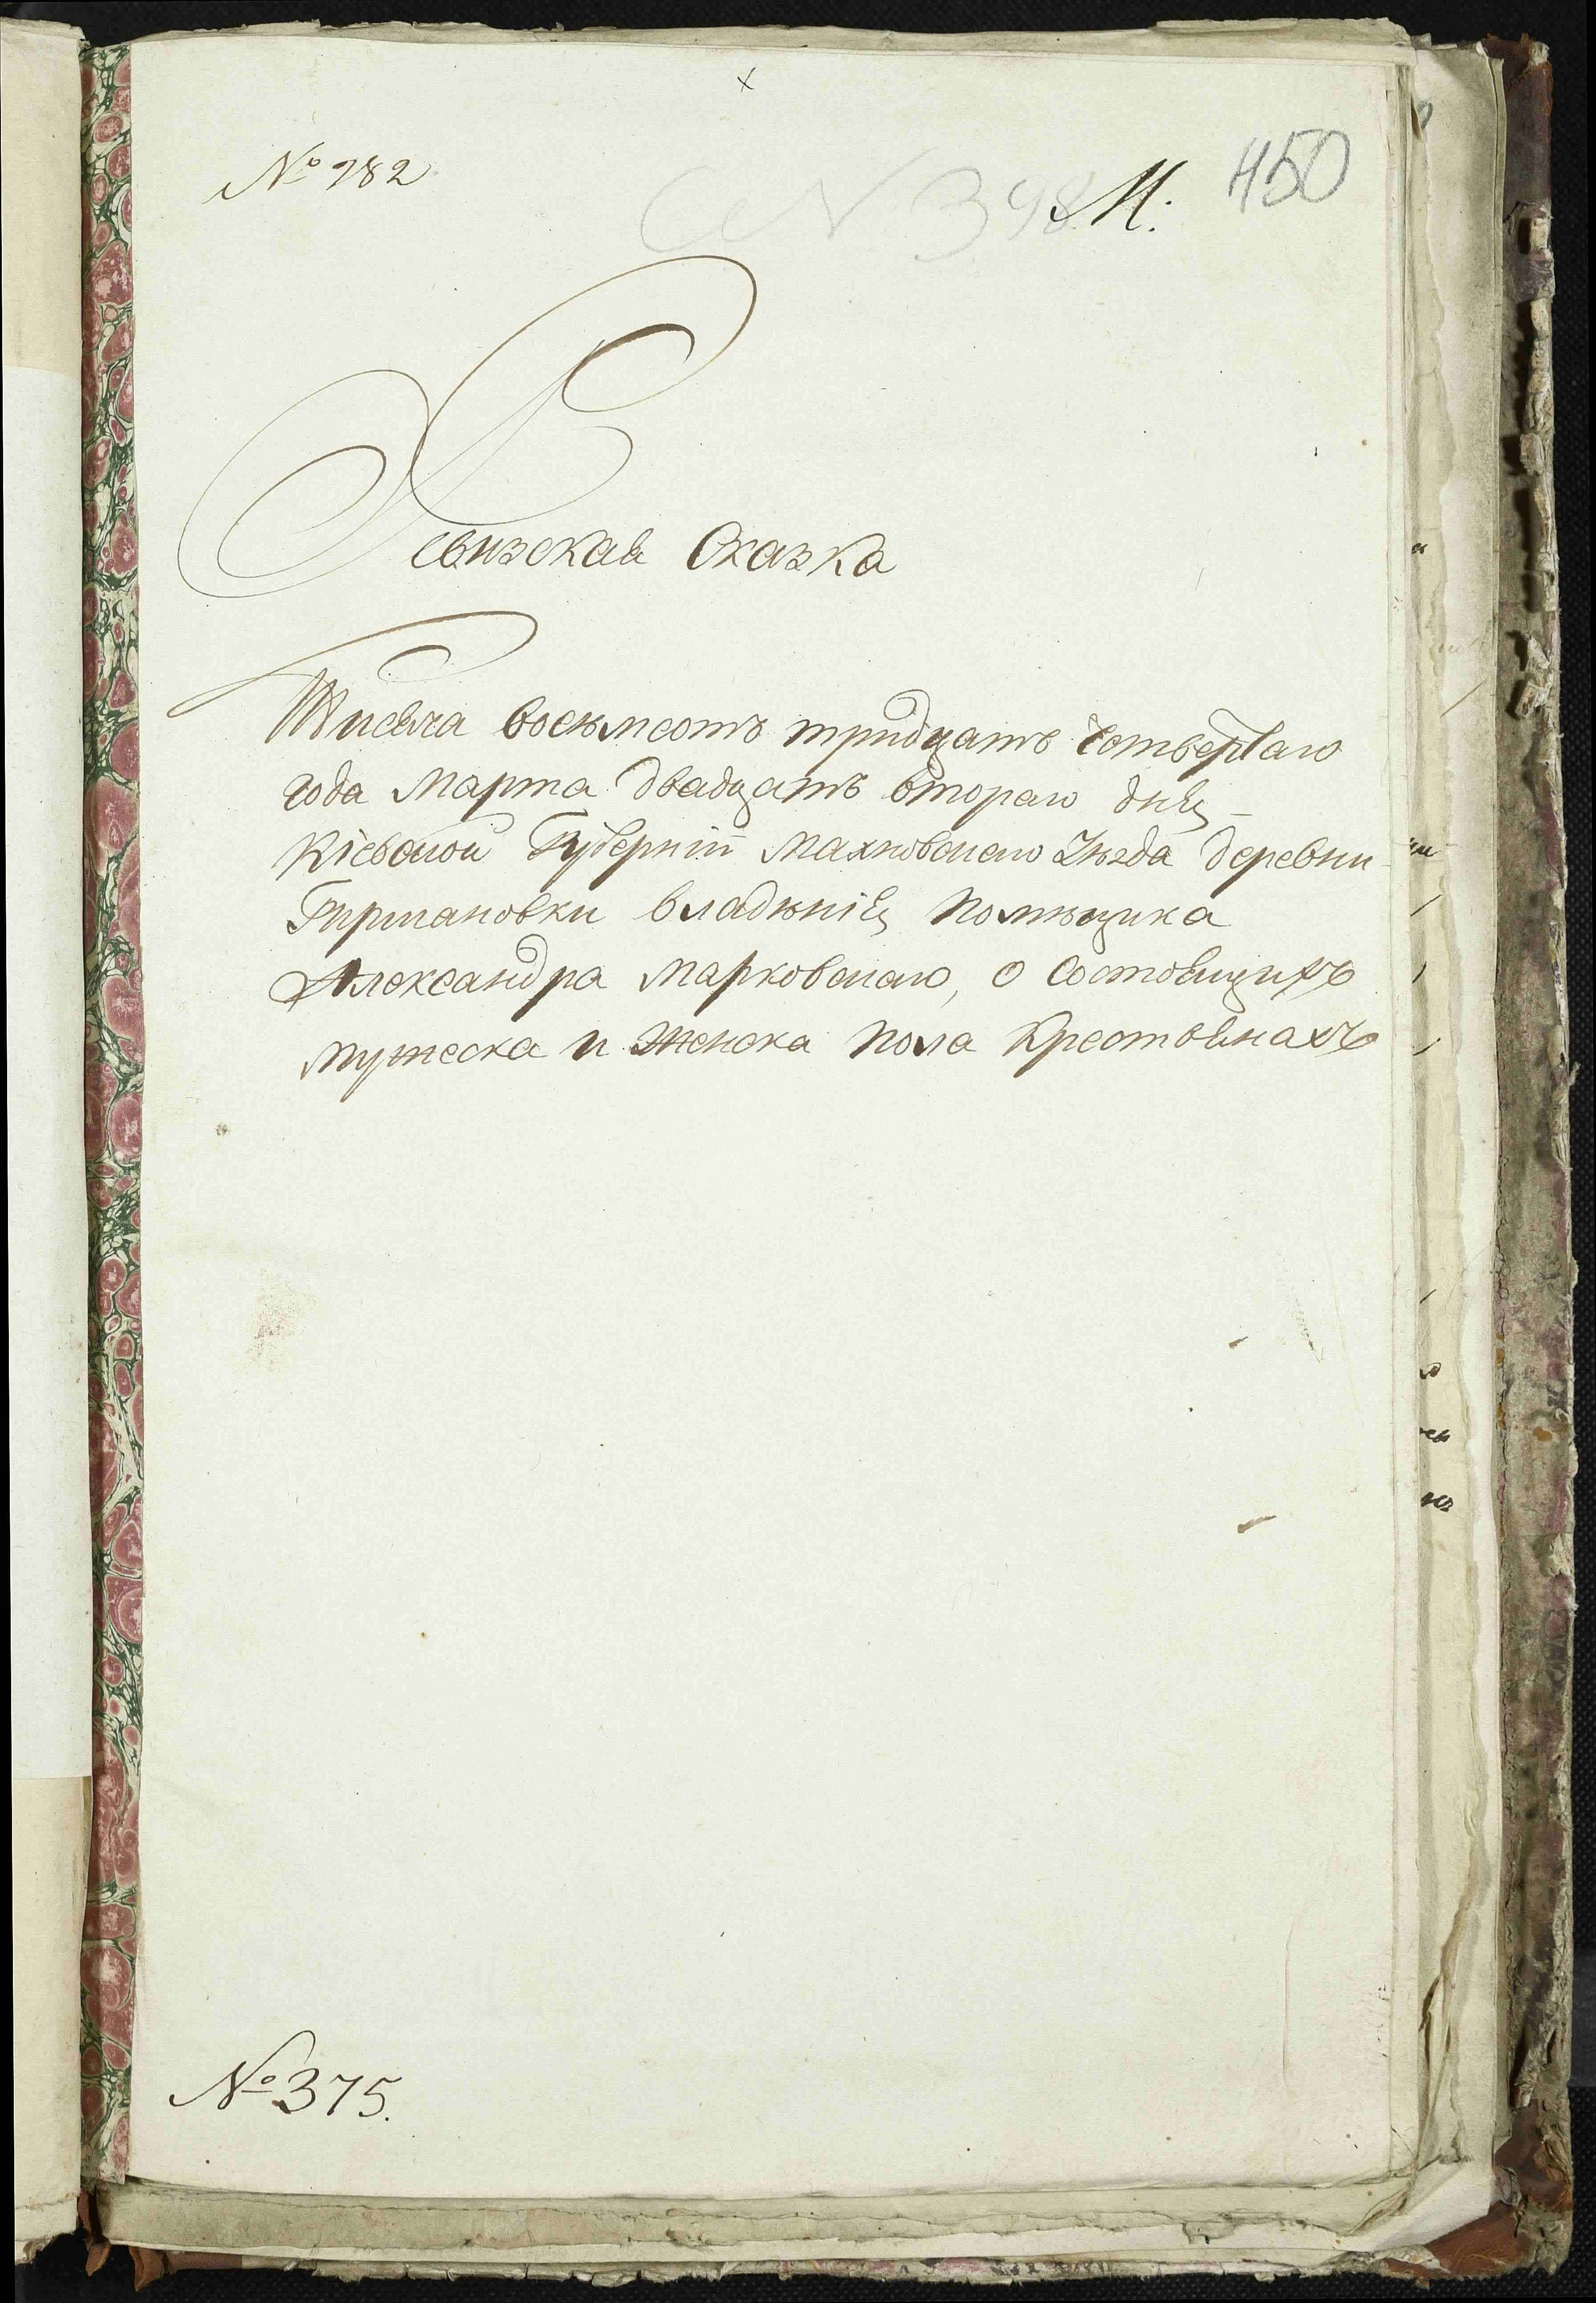 № 282
N 398
М:
450
Ревизская Сказка
Тисяча восемьсотъ тридцать четвертаго
года Марта двадцать втораго дня
Кіевской Губерніи Махновскаго Уѣзда деревни
Гирмановки владѣнія помѣщика
Александра Марковскаго, о состоящихъ
мужеска и женска пола Крестьянахъ
№ 375.